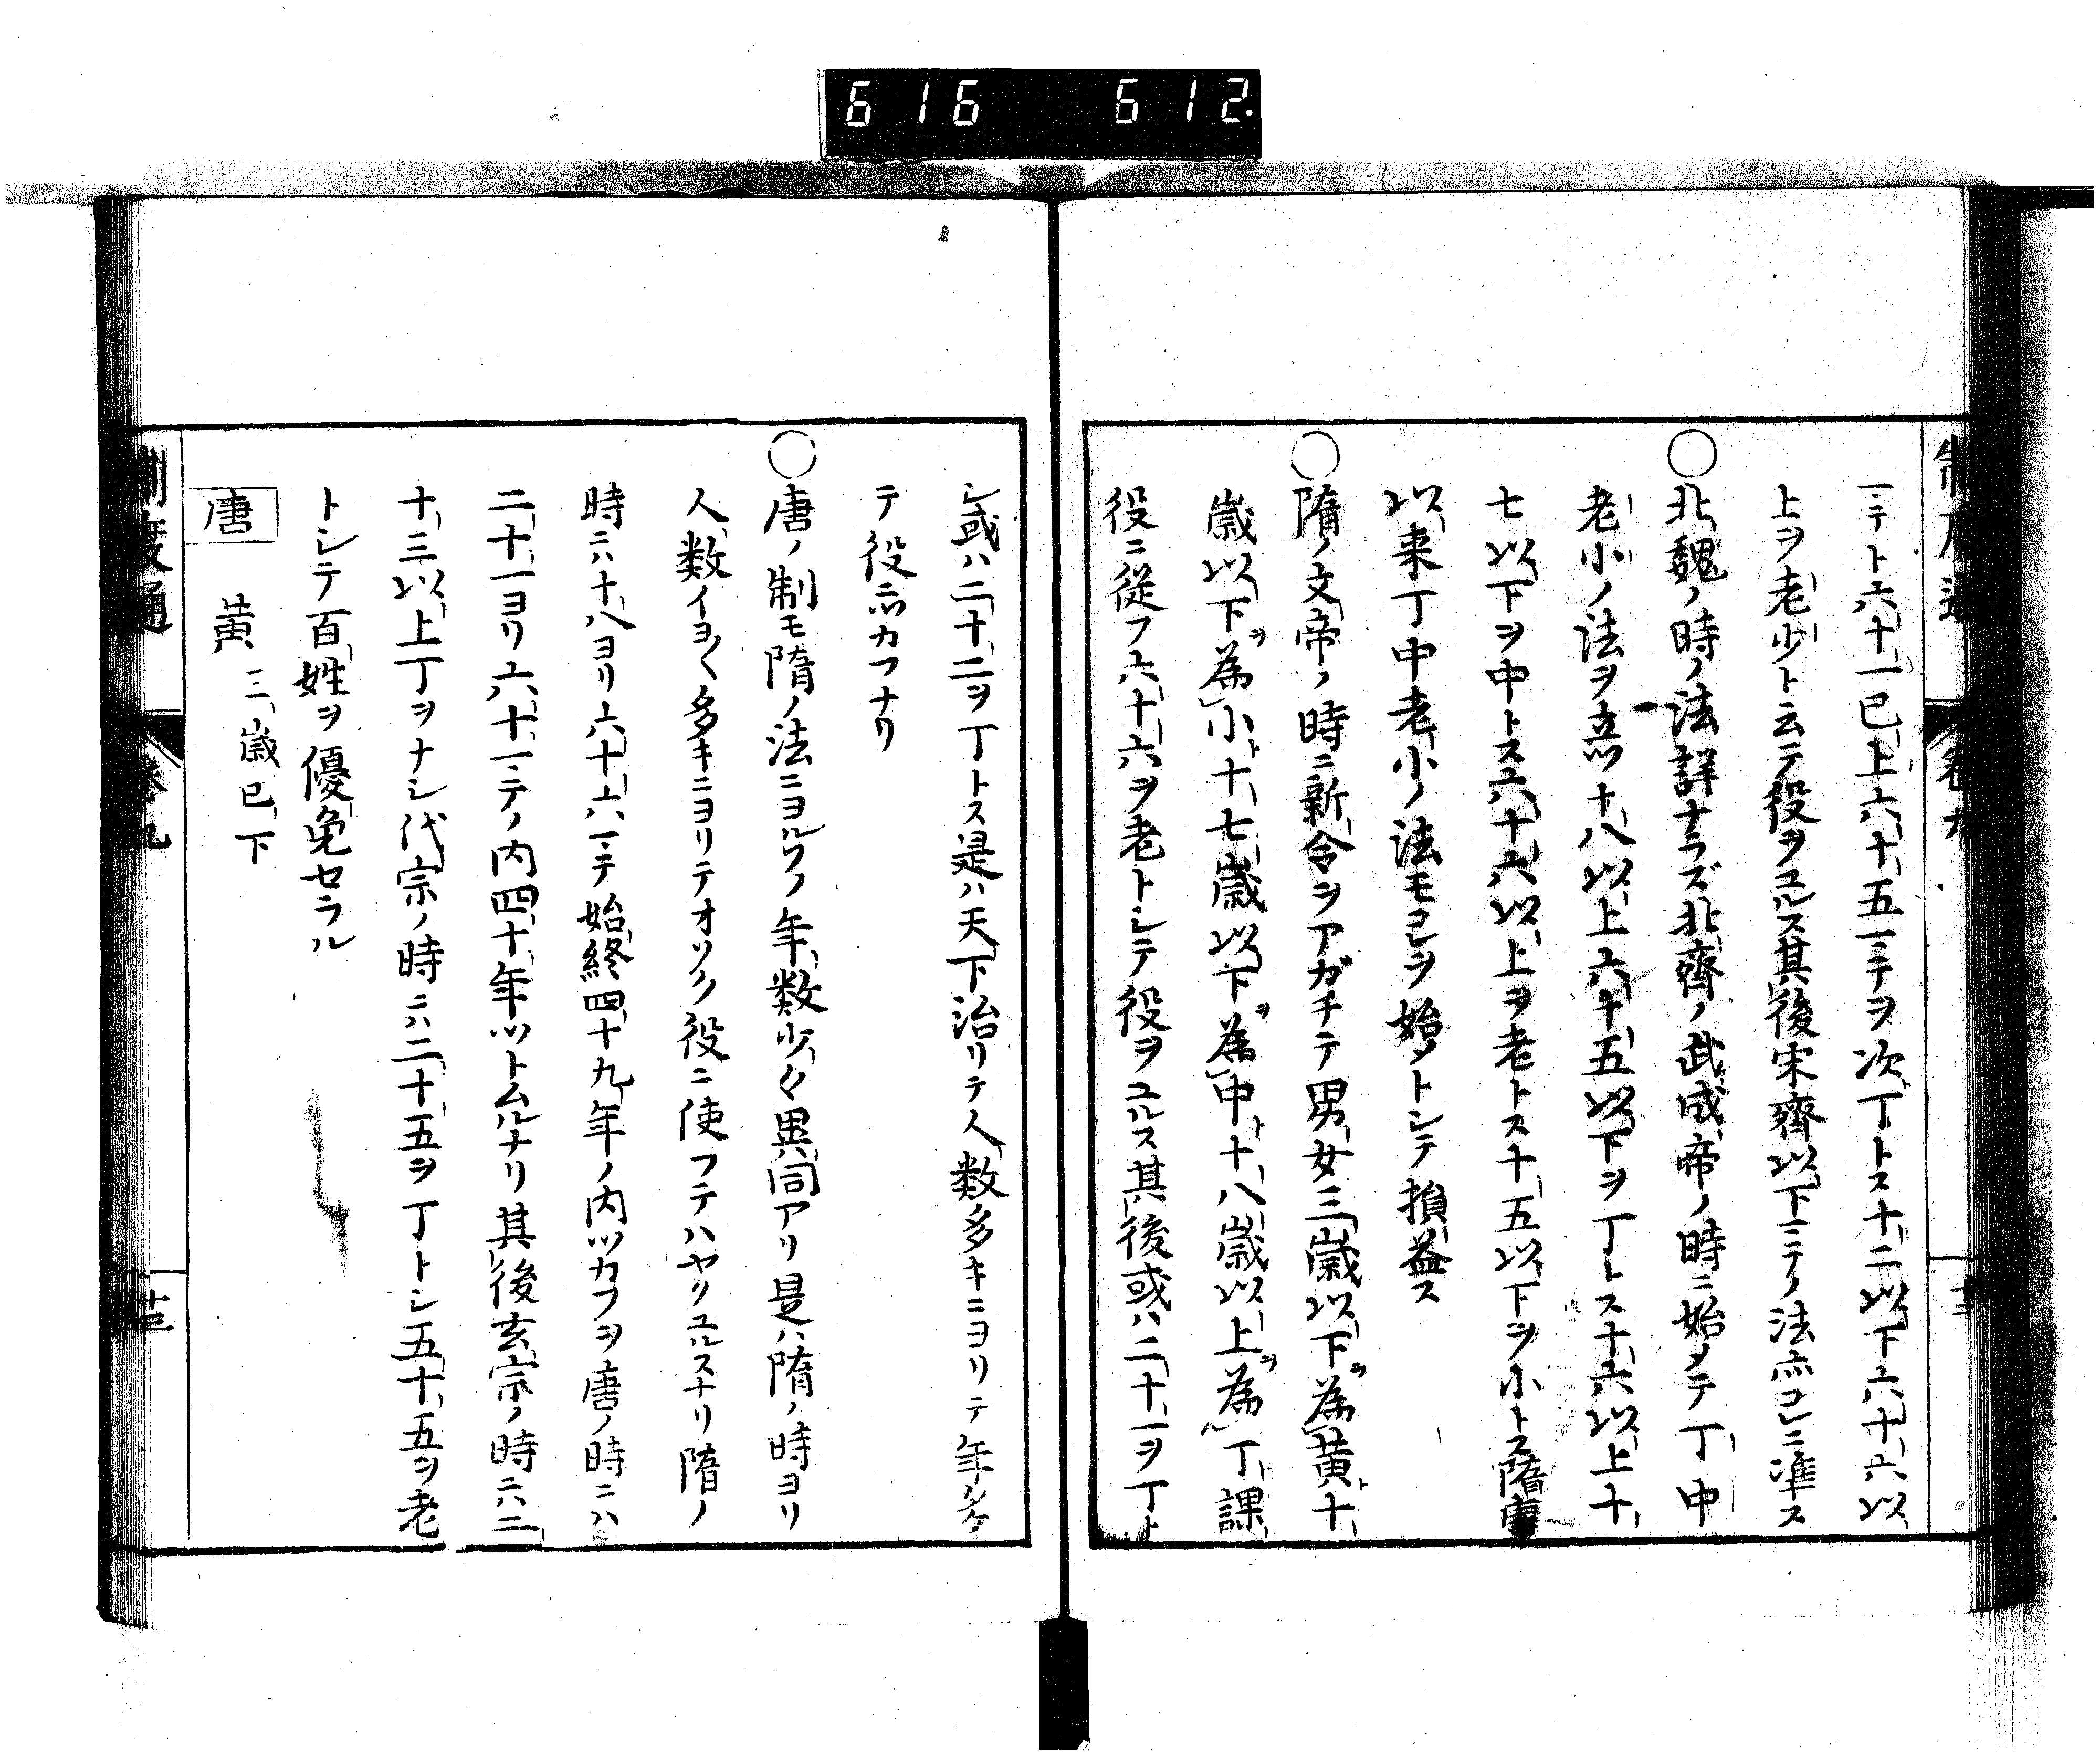 616 612.
制度通 卷九
一ニテト六十一已上六十五ニテヲ次丁トス十二以下六十六以
上ヲ老少ト云テ役ヲユルス其後宋齊以下ニテノ法亦コレニ準ス
〇北魏ノ時ノ法詳ナラズ北齊ノ武成帝ノ時ニ始メテ丁中
老小ノ法ヲ立ツ十八以上六十五以下ヲ丁トス十六以上十
七以下ヲ中トス六十六以上ヲ老トス十五以下ヲ小トス隋唐
以来丁中老小ノ法モコレヲ始メトシテ損益ス
〇隋ノ文帝ノ時ニ新令ヲアガチテ男女三歳以下ヲ為黄ト十
歳以下ヲ為小ト十七歳以下ヲ為中ト十八歳以上ヲ為丁ト課
役ニ従フ六十六ヲ老トシテ役ヲユルス其後或ハ二十一ヲ丁ト
シ或ハ二十二ヲ丁トス是ハ天下治リテ人数多キニヨリテ年多
テ役ニツカフナリ
〇唐ノ制モ隋ノ法ニヨルソノ年数少々異同アリ是ハ隋ノ時ヨリ
人数イヨ〱多キニヨリテオソク役ニ使フテハヤクユルスナリ隋ノ
時ニハ十八ヨリ六十六ニテ始終四十九年ノ内ツカフヲ唐ノ時ニハ
二十一ヨリ六十一ニテノ内四十年ツトムルナリ其後玄宗ノ時ニハ二
十三以上丁ヲナシ代宗ノ時ニハ二十五ヲ丁トシ五十五ヲ老
トシテ百姓ヲ優免セラル
唐 黄 三歳已下
制度通 卷九